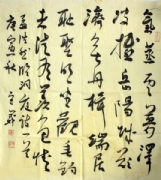 氣蒸雲夢澤
波撼岳陽城欲
濟無舟楫端居
恥聖明坐觀垂釣
者徒有羡魚情
孟浩然
庚寅秋